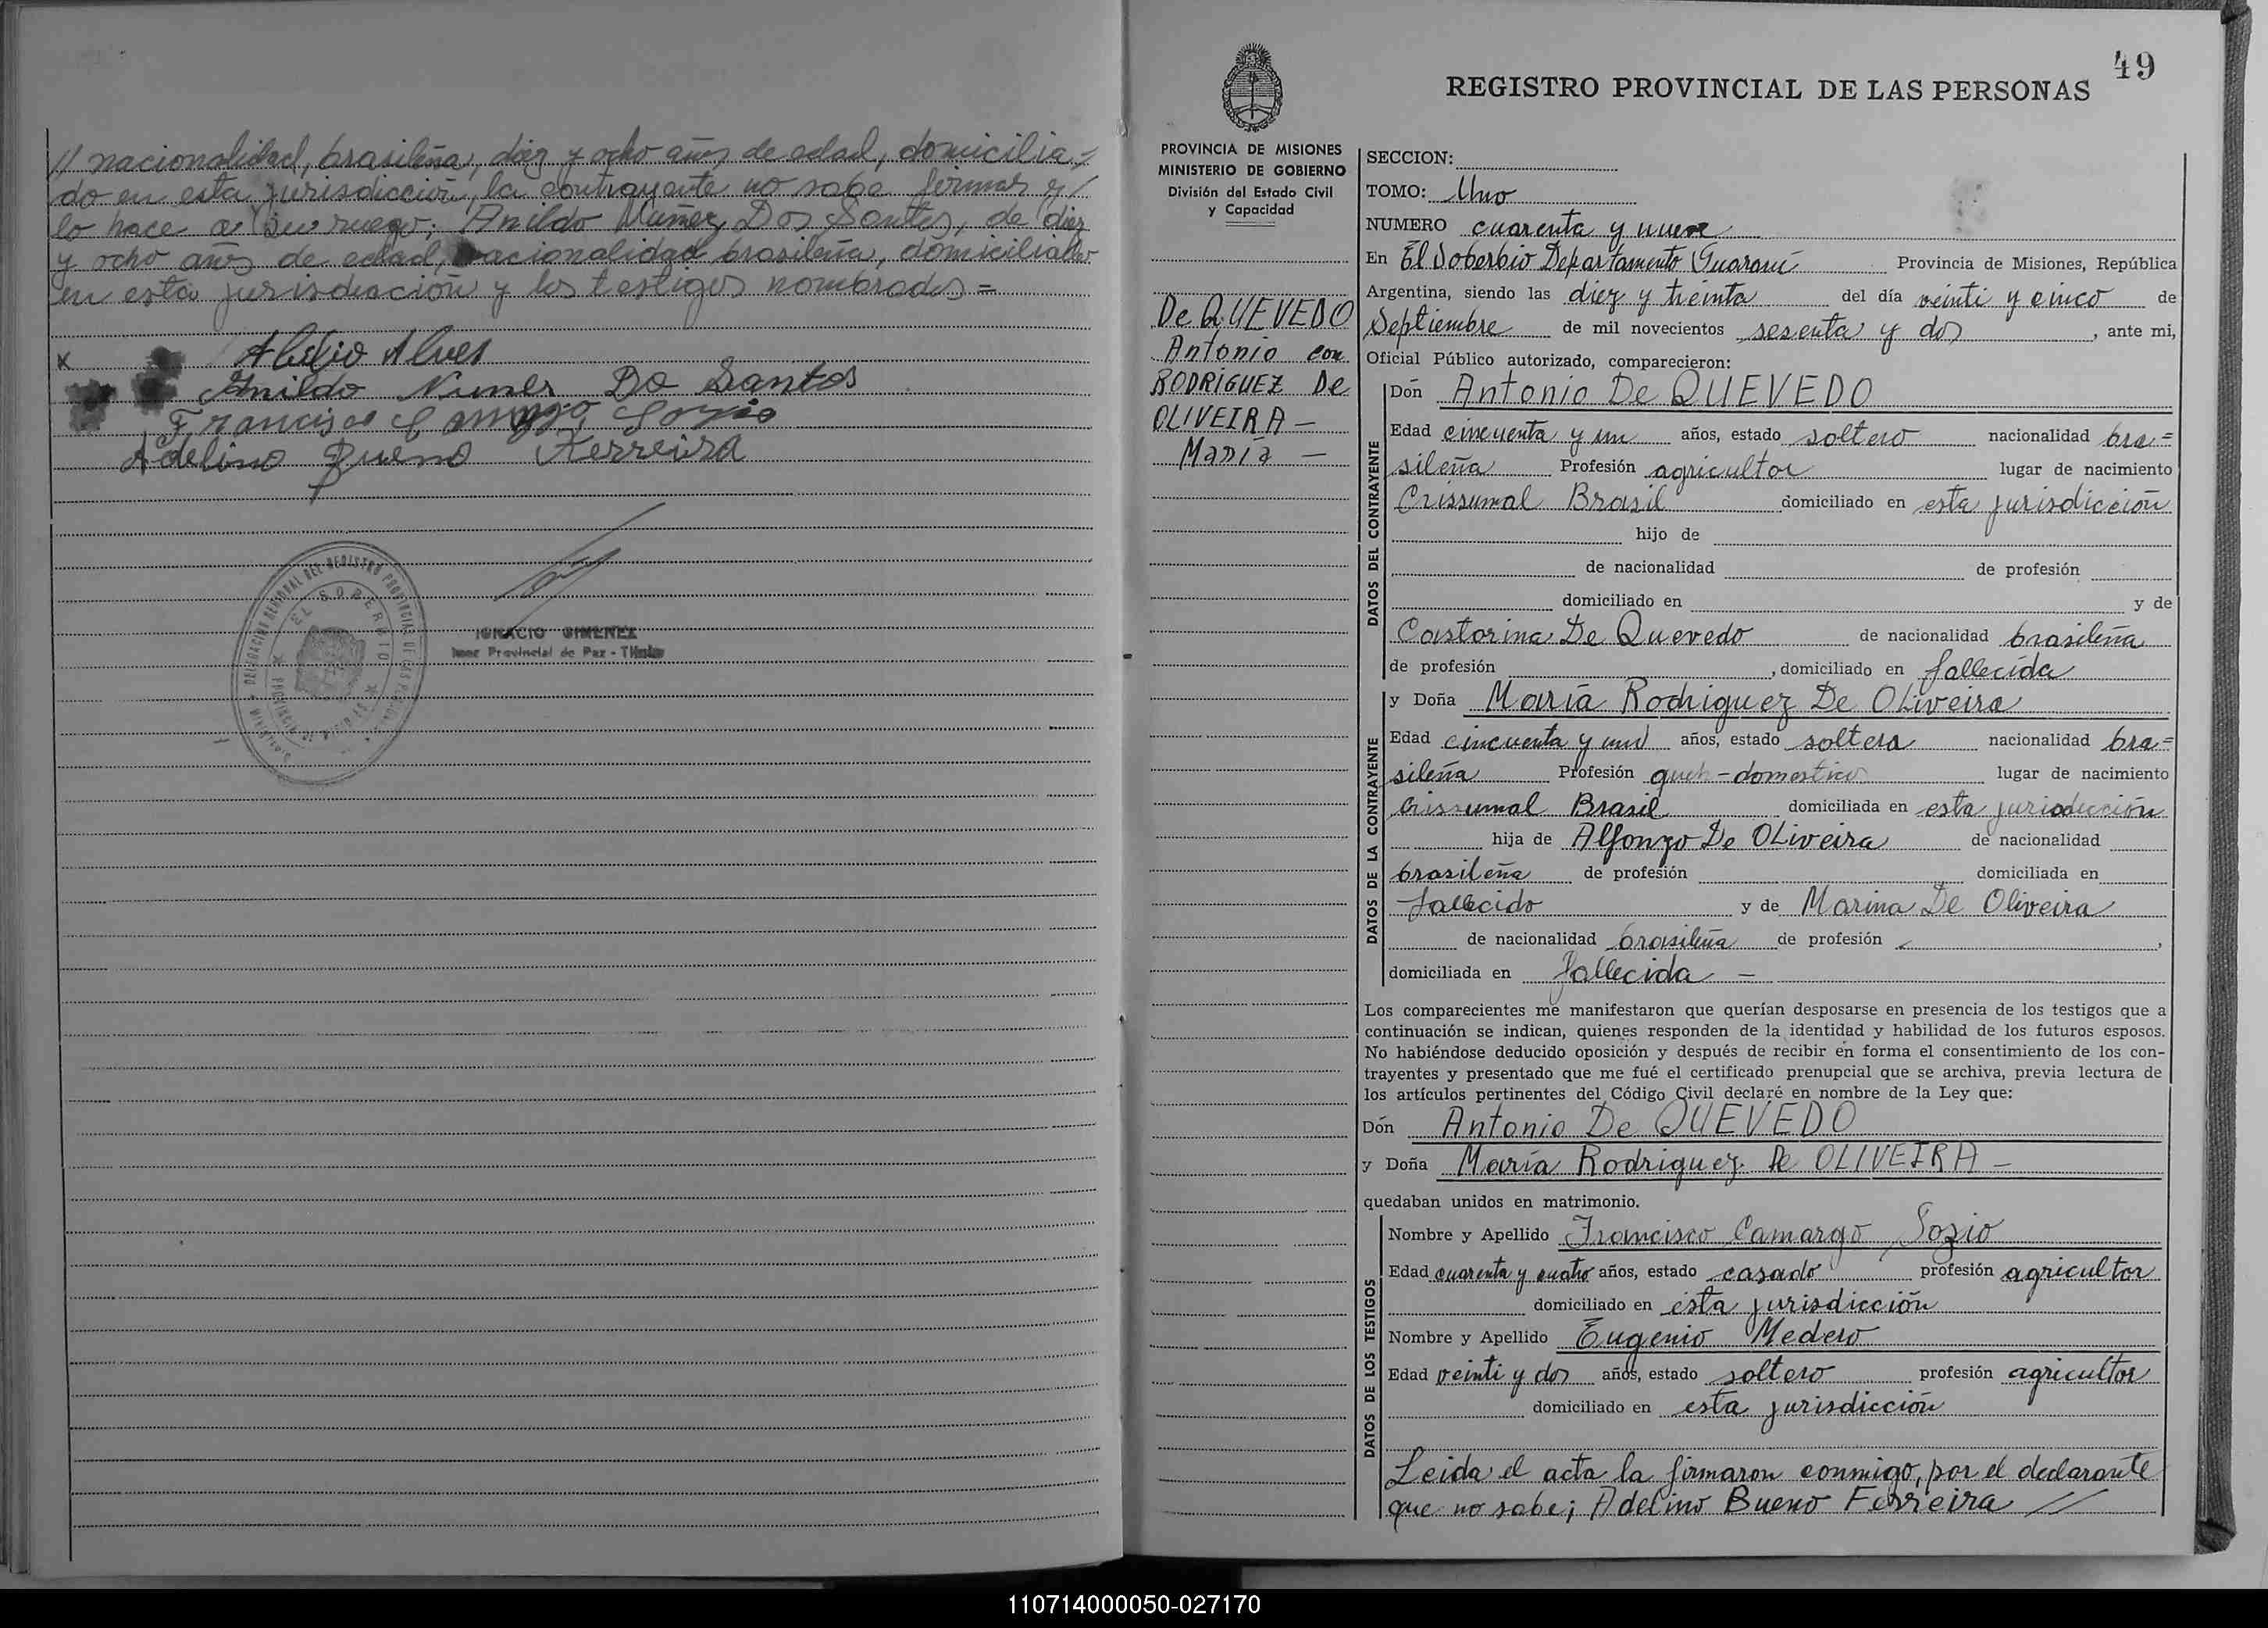 // nacionalidad, brasileña, diez y ocho años de edad, domicilia=
do en esta jurisdicción, la contrayente no sabe firmar y /
lo hace a su ruego; Anildo Nuñez Dos Santos, de diez
y ocho años de edad, nacionalidad brasileña, domiciliado
en esta jurisdicción y los testigos nombrados =
x Alvés
Anildo Nunes Do Santos
Francisco Camargo Sozio
Adelino Bueno Ferreira
DELEGACION DEL REGISTRO PROVINCIAL DE LAS
EL SOBERBIO
IGNACIO GIMENEZ
Juez Provincial de Paz - Titular
49
REGISTRO PROVINCIAL DE LAS PERSONAS
PROVINCIA DE MISIONES
MINISTERIO DE GOBIERNO
División del Estado Civil
y Capacidad
De QUEVEDO
Antonio con
RODRIGUEZ De
OLIVEIRA —
María —
SECCION:
TOMO: Uno
NUMERO cuarenta y nueve
En El Soberbio Departamento Guaraní Provincia de Misiones, República
Argentina, siendo las diez y treinta del día veinti y cinco de
Septiembre de mil novecientos sesenta y dos, ante mi,
Oficial Público autorizado, comparecieron:
DATOS DEL CONTRAYENTE
Dón Antonio De QUEVEDO
Edad cincuenta y un años, estado soltero nacionalidad bra=
sileña Profesión agricultor lugar de nacimiento
Crissumal Brasil domiciliado en esta jurisdicción
hijo de
de nacionalidad de profesión
domiciliado en y de
Castorina De Quevedo de nacionalidad brasileña
de profesión , domiciliado en fallecida
DATOS DE LA CONTRAYENTE
y Doña María Rodriguez De Oliveira
Edad cincuenta y un años, estado soltera nacionalidad bra=
sileña Profesión queh-domestico lugar de nacimiento
Crissumal Brasil domiciliada en esta jurisdicción
hija de Alfonzo De Oliveira de nacionalidad
brasileña de profesión domiciliada en
fallecido y de Marina De Oliveira
de nacionalidad brasileña de profesión ,
domiciliada en fallecida —
Los comparecientes me manifestaron que querían desposarse en presencia de los testigos que a
continuación se indican, quienes responden de la identidad y habilidad de los futuros esposos.
No habiéndose deducido oposición y después de recibir en forma el consentimiento de los con-
trayentes y presentado que me fué el certificado prenupcial que se archiva, previa lectura de
los artículos pertinentes del Código Civil declaré en nombre de la Ley que:
Dón Antonio De QUEVEDO
y Doña María Rodriguez De OLIVEIRA —
quedaban unidos en matrimonio.
DATOS DE LOS TESTIGOS
Nombre y Apellido Francisco Camargo Sozio
Edad cuarenta y cuatro años, estado casado profesión agricultor
domiciliado en ésta jurisdicción
Nombre y Apellido Eugenio Medero
Edad veinti y dos años, estado soltero profesión agricultor
domiciliado en esta jurisdicción
Leida el acta la firmaron conmigo, por el declarante
que no sabe; Adelino Bueno Ferreira //
110714000050-027170